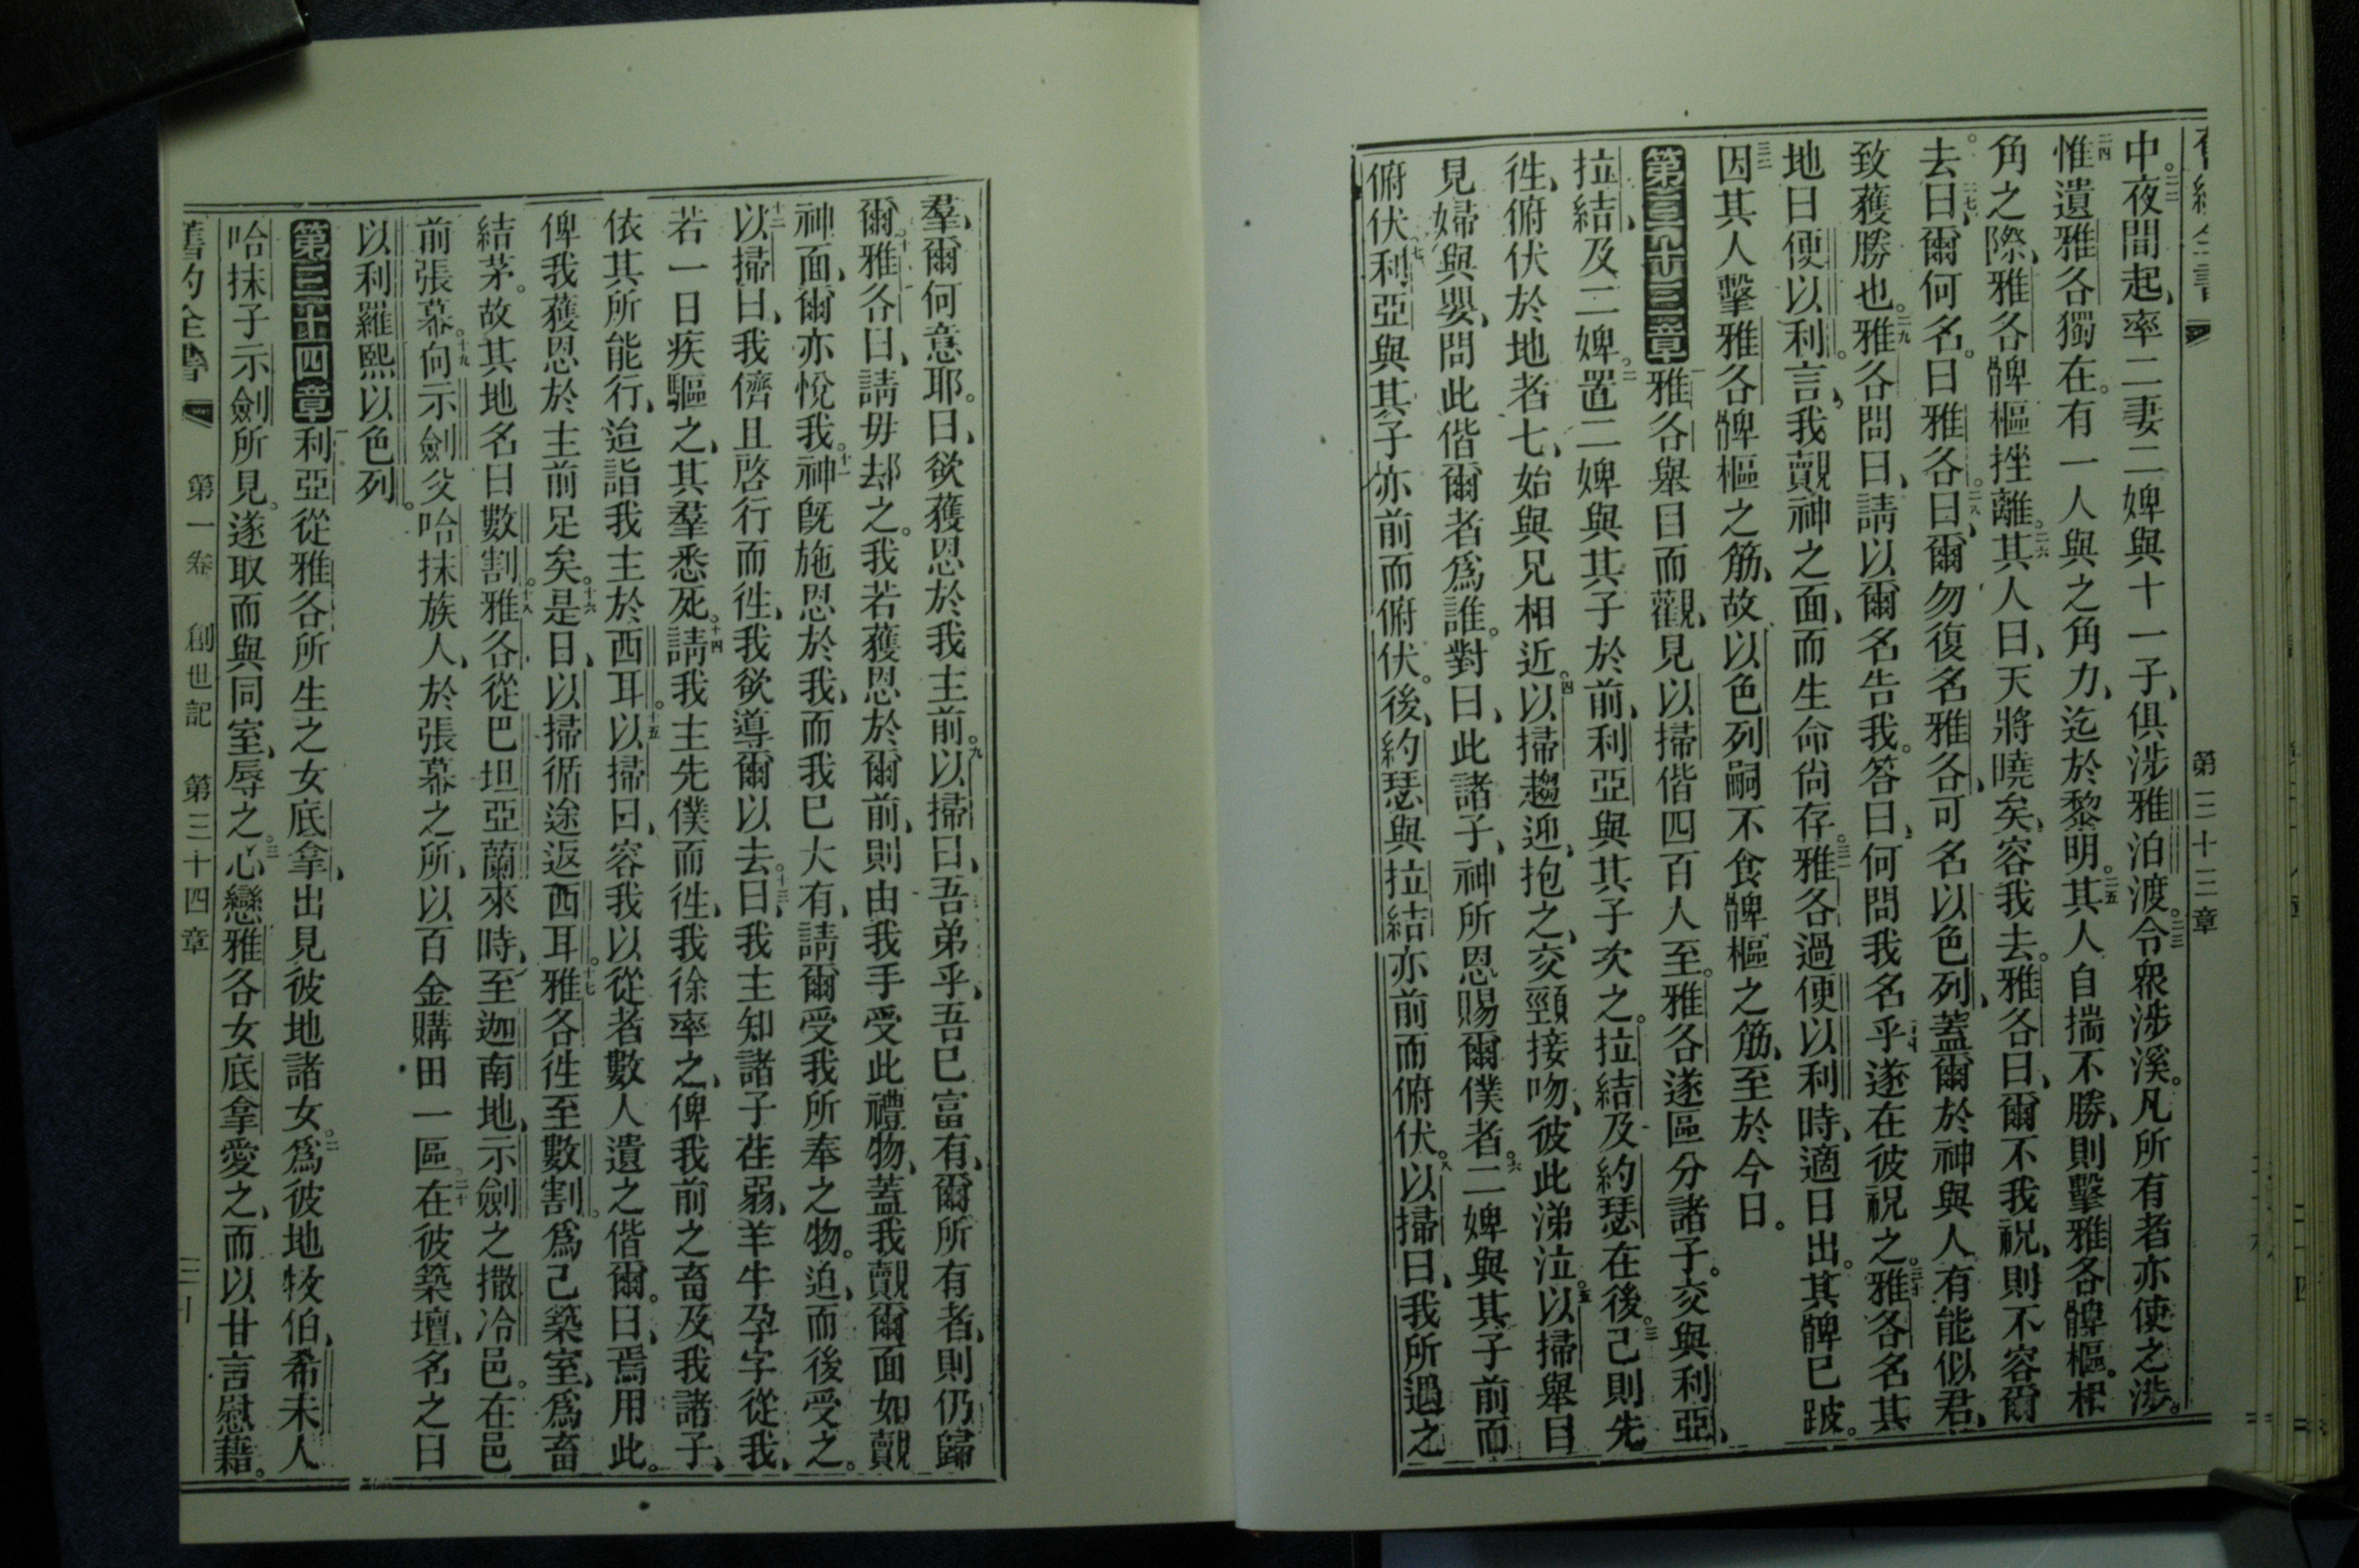 第三十三章
中。二二夜間起、率二妻二婢與十一子、俱涉雅泊渡。二三令衆涉溪。凡所有者亦使之涉。
二四惟遺雅各獨在。有一人與之角力、迄於黎明。二五其人自揣不勝、則擊雅各髀樞。相
角之際、雅各髀樞挫離。二六其人曰、天將曉矣、容我去。雅各曰、爾不我祝、則不容爾
去。二七曰、爾何名。曰雅各。二八曰、爾勿復名雅各、可名以色列、蓋爾於神與人有能似君、
致獲勝也。二九雅各問曰、請以爾名告我。答曰、何問我名乎、遂在彼祝之。三十雅各名其
地曰便以利。言、我覿神之面、而生命尙存。三一雅各過便以利時、適日出。其髀已跛。
三二因其人擊雅各髀樞之筋、故以色列嗣不食髀樞之筋、至於今日。
第三十三章 一雅各舉目而觀、見以掃偕四百人至。雅各遂區分諸子。交與利亞、
拉結、及二婢。二置二婢與其子於前、利亞與其子次之。拉結及約瑟在後。三己則先
徃、俯伏於地者七、始與兄相近。四以掃趨迎、抱之、交頸接吻、彼此涕泣。五以掃舉目
見婦與嬰、問此偕爾者爲誰。對曰、此諸子、神所恩賜爾僕者。六二婢與其子前而
俯伏。七利亞與其子亦前而俯伏。後、約瑟與拉結亦前而俯伏。八以掃曰、我所遇之
羣、爾何意耶。曰、欲獲恩於我主前。九以掃曰、吾弟乎、吾已富有、爾所有者、則仍歸
爾。十雅各曰、請毋却之。我若獲恩於爾前、則由我手受此禮物、蓋我覿爾面如覿
神面、爾亦悅我。十一神旣施恩於我、而我已大有、請爾受我所奉之物。迫、而後受之。
十二以掃曰、我儕且啓行而徃、我欲導爾以去。十三曰、我主知諸子荏弱、羊牛孕字從我、
若一日疾驅之、其羣悉死。十四請我主先僕而徃、我徐率之、俾我前之畜及我諸子、
依其所能行、迨詣我主於西耳。十五以掃曰、容我以從者數人遺之偕爾。曰、焉用此。
俾我獲恩於主前足矣。十六是日、以掃循途返西耳。十七雅各徃至數割。爲己築室、爲畜
結茅。故其地名曰數割。十八雅各從巴坦亞蘭來時、至迦南地、示劍之撒冷邑。在邑
前張幕。十九向示劍父哈抹族人、於張幕之所、以百金購田一區。二十在彼築壇、名之曰
以利羅熙以色列。
第三十四章 一利亞從雅各所生之女底拿、出見彼地諸女。二爲彼地牧伯、希未人
哈抹子示劍所見。遂取而與同室、辱之。三心戀雅各女底拿愛之、而以甘言慰藉。
舊約全書 第一卷 創世記 第三十四章